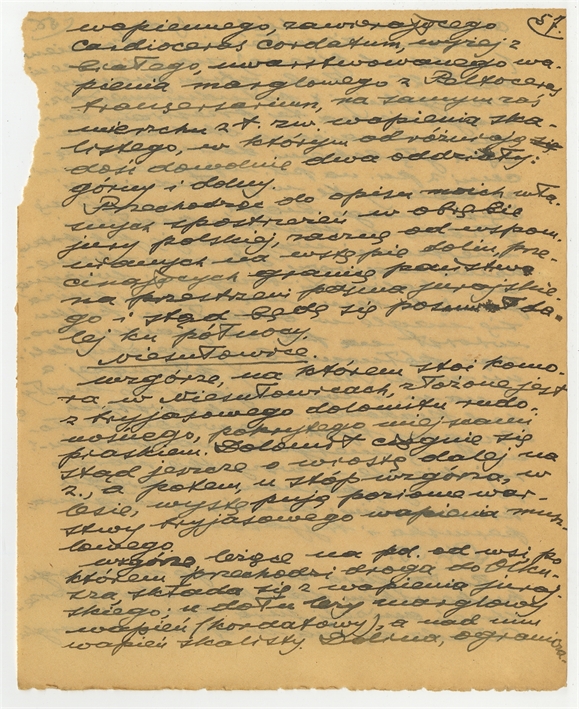 57.
wapiennego, zawierającego
Cardioceras cordatum, wyżej z
białego, uwarstwowanego wa-
pienia marglowego z Peltoceras
transversarium, na samym zaś
wierzchu z t. zw. wapienia ska-
listego, w którym odróżniają się
dość dowodnie dwa oddziały:
górny i dolny.
Przechodząc do opisu moich wła-
snych spostrzeżeń w obrębie
jury polskiej, zacznę od wspom-
nianych na wstępie dolin, prze-
cinających granicę państwa
na przestrzeni pasma jurajskie-
go i stąd będę się posuwał da-
lej ku północy.
Niesułowice.
Wzgórze, na którem stoi komo-
ra w Niesułowicach, złożone jest
z tryjasowego dolomitu rudo-
nośnego, pokrytego miejscami
piaskiem. Dolomit ciągnie się
stąd jeszcze o wiorstę dalej na
z., a potem, u stóp wzgórza, w
lesie, występują poziome war-
stwy tryjasowego wapienia musz-
lowego.
Wzgórze leżące na pd. od wsi, po
którem przechodzi droga do Olku-
sza, składa się z wapienia juraj-
skiego; u dołu leży marglowy
wapień (kordatowy), a nad nim
wapień skalisty. Dolina, ograniczo-